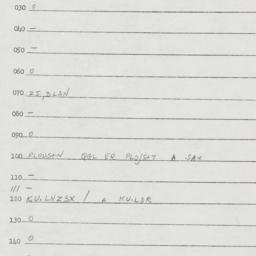 030 0
040 —
050 —
060 0
070 ZI, DLAN
080 —
090 0
100 PLOUSEN GGL ER PLO/SET A SAX
110 —
111 —
120 KU.LNZSX / A KU.LDR
130 0
140 0